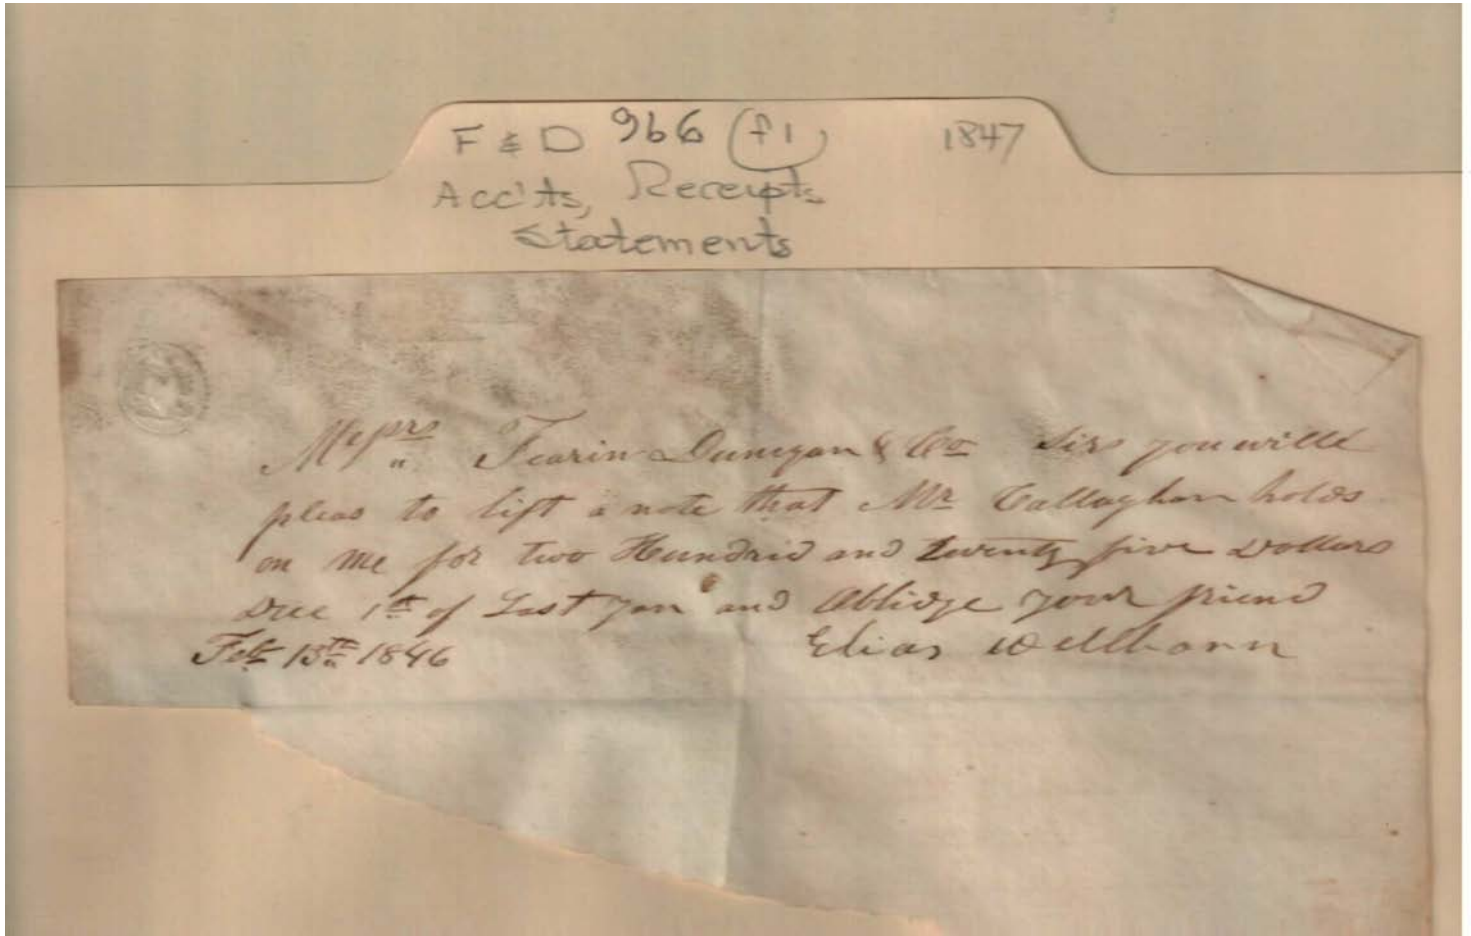 F & D 966 (f1) 1847
Acc'ts, Receipts
Statements
Messrs Fearin Dunegan & Co Sirs you willl
pleas to lift a note that Mr Callaghan holds
on me for two Hundrid and twenty five Dollars
Due 1st of Last Jan and Oblidge your friend
Feb 13th 1846 Elias Wellborn